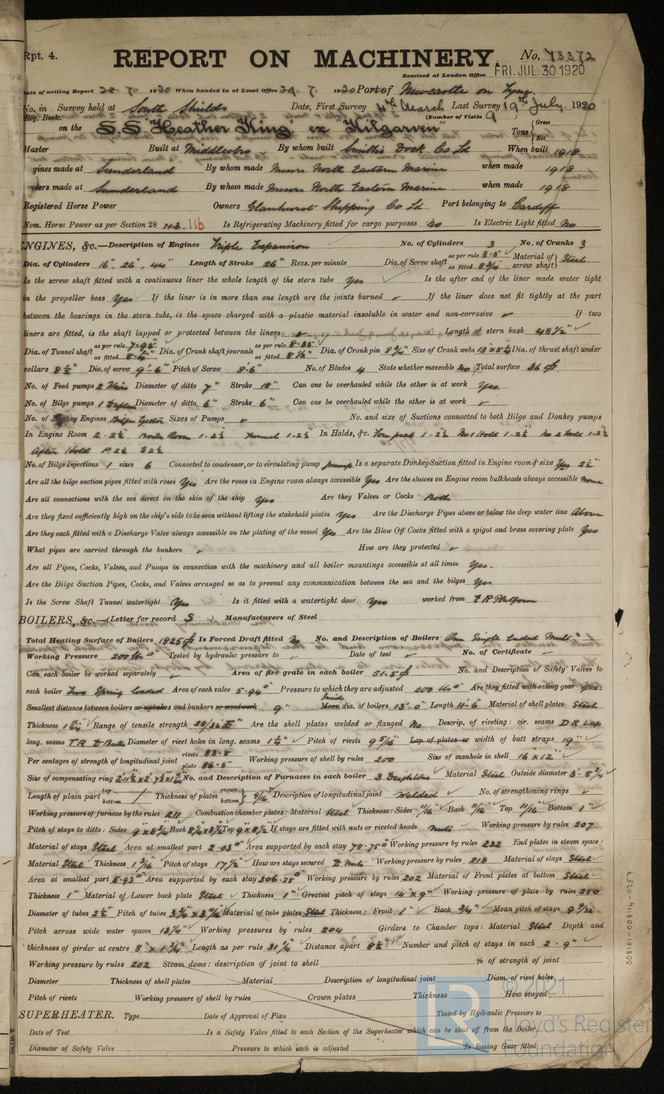 Rpt. 4.
REPORT ON MACHINERY. No. 73372
Received at London Office FRI. JUL. 30 1920
Date of writing Report 28. 7. 1920 When handed in at Local Office 29. 7. 1920 Port of Newcastle on Tyne
No. in Survey held at South Shields Date, First Survey 4th March Last Survey 19th July 1920
Reg. Book. (Number of Visits 9
on the S.S Heather King ex Kilgarven Tons Gross Net
Master Built at Middlesbro By whom built Smith's Dock Co Ld When built 1918
Engines made at Sunderland By whom made Messrs North Eastern Marine when made 1918
Boilers made at Sunderland By whom made Messrs North Eastern Marine when made 1918
Registered Horse Power Owners Glanhurst Shipping Co Ld Port belonging to Cardiff
Nom. Horse Power as per Section 28 116 Is Refrigerating Machinery fitted for cargo purposes No Is Electric Light fitted No
ENGINES, &c.—Description of Engines Triple Expansion No. of Cylinders 3 No. of Cranks 3
Dia. of Cylinders 16", 26", 44" Length of Stroke 26" Revs. per minute Dia. of Screw shaft as per rule 8.5" as fitted 8 3/4" Material of screw shaft Steel
Is the screw shaft fitted with a continuous liner the whole length of the stern tube Yes Is the after end of the liner made water tight
in the propeller boss Yes If the liner is in more than one length are the joints burned If the liner does not fit tightly at the part
between the bearings in the stern tube, is the space charged with a plastic material insoluble in water and non-corrosive If two
liners are fitted, is the shaft lapped or protected between the liners Length of stern bush 48 1/2"
Dia. of Tunnel shaft as per rule as fitted Dia. of Crank shaft journals as per rule 8.35" as fitted 8 1/2" Dia. of Crank pin 8 3/4" Size of Crank webs Dia. of thrust shaft under
collars 8 1/2" Dia. of screw 9'-6" Pitch of Screw 8'-6" No. of Blades 4 State whether moveable No Total surface 36
No. of Feed pumps 2 Diameter of ditto Stroke Can one be overhauled while the other is at work Yes
No. of Bilge pumps 1 Diameter of ditto 6" Stroke 6" Can one be overhauled while the other is at work
No. of Donkey Engines Sizes of Pumps No. and size of Suctions connected to both Bilge and Donkey pumps
In Engine Room 2-2 1/2 Boiler Room 1-2 1/2 Tunnel 1-2 1/2 In Holds, &c. Fore peak 1-2 1/2 No 1 Hold 1-2 1/2 No 2 Hold 1-2 1/2
After Hold P 2 1/2 S 2 1/2
No. of Bilge Injections 1 sizes 6 Connected to condenser, or to circulating pump pump Is a separate Donkey Suction fitted in Engine room & size Yes 2 1/2"
Are all the bilge suction pipes fitted with roses Yes Are the roses in Engine room always accessible Yes Are the sluices on Engine room bulkheads always accessible none
Are all connections with the sea direct on the skin of the ship Yes Are they Valves or Cocks Both
Are they fixed sufficiently high on the ship's side to be seen without lifting the stokehold plates Yes Are the Discharge Pipes above or below the deep water line Above
Are they each fitted with a Discharge Valve always accessible on the plating of the vessel Yes Are the Blow Off Cocks fitted with a spigot and brass covering plate Yes
What pipes are carried through the bunkers How are they protected
Are all Pipes, Cocks, Valves, and Pumps in connection with the machinery and all boiler mountings accessible at all times Yes.
Are the Bilge Suction Pipes, Cocks, and Valves arranged so as to prevent any communication between the sea and the bilges Yes
Is the Screw Shaft Tunnel watertight Yes Is it fitted with a watertight door Yes worked from E R Platform
BOILERS, &c.—(Letter for record S Manufacturers of Steel
Total Heating Surface of Boilers 1825 Is Forced Draft fitted No No. and Description of Boilers One Single Ended Multi
Working Pressure 200 Tested by hydraulic pressure to Date of test No. of Certificate
Can each boiler be worked separately Area of fire grate in each boiler 51.5 No. and Description of Safety Valves to
each boiler Two Spring loaded Area of each valve 5.94" Pressure to which they are adjusted 200 Are they fitted with easing gear Yes
Smallest distance between boilers or uptakes and bunkers or woodwork 9" Inside dia. of boilers 13'-0" Length 11-6 Material of shell plates Steel
Thickness Range of tensile strength 28/32 Are the shell plates welded or flanged No Descrip. of riveting: cir. seams D R Lap
long. seams T R D Butts Diameter of rivet holes in long. seams 1 1/4" Pitch of rivets 9 5/16" Lap of plates or width of butt straps 19"
Per centages of strength of longitudinal joint rivets 83.8 plate 86.5 Working pressure of shell by rules 200 Size of manhole in shell 16 x 12"
Size of compensating ring No. and Description of Furnaces in each boiler 3 Deighton Material Steel Outside diameter
Length of plain part top bottom Thickness of plates crown bottom 9/16 Description of longitudinal joint Welded No. of strengthening rings
Working pressure of furnace by the rules 211 Combustion chamber plates: Material Steel Thickness: Sides 11/16 Back 11/16 Top 11/16 Bottom 1"
Pitch of stays to ditto: Sides Back Top If stays are fitted with nuts or riveted heads Nuts Working pressure by rules 207
Material of stays Steel Area at smallest part 2.03 Area supported by each stay 78.75 Working pressure by rules 232 End plates in steam space:
Material Steel Thickness 1 3/16 Pitch of stays 17 1/2 How are stays secured D Nuts Working pressure by rules 218 Material of stays Steel
Area at smallest part 5.93 Area supported by each stay 306.25 Working pressure by rules 202 Material of Front plates at bottom Steel
Thickness 1" Material of Lower back plate Steel Thickness 1" Greatest pitch of stays 14 x 9" Working pressure of plate by rules 250
Diameter of tubes 2 1/2 Pitch of tubes Material of tube plates Steel Thickness: Front 1" Back 3/4" Mean pitch of stays
Pitch across wide water spaces 13 3/4" Working pressures by rules 204 Girders to Chamber tops: Material Steel Depth and
thickness of girder at centre Length as per rule 31 3/4 Distance apart Number and pitch of stays in each 2 - 9"
Working pressure by rules 202 Steam dome: description of joint to shell % of strength of joint
Diameter Thickness of shell plates Material Description of longitudinal joint Diam. of rivet holes
Pitch of rivets Working pressure of shell by rules Crown plates Thickness How stayed
SUPERHEATER. Type Date of Approval of Plan Tested by Hydraulic Pressure to
Date of Test Is a Safety Valve fitted to each Section of the Superheater which can be shut off from the Boiler
Diameter of Safety Valve Pressure to which each is adjusted Is Easing Gear fitted
008101-008114-0257
© 2021
Lloyd's Register
Foundation